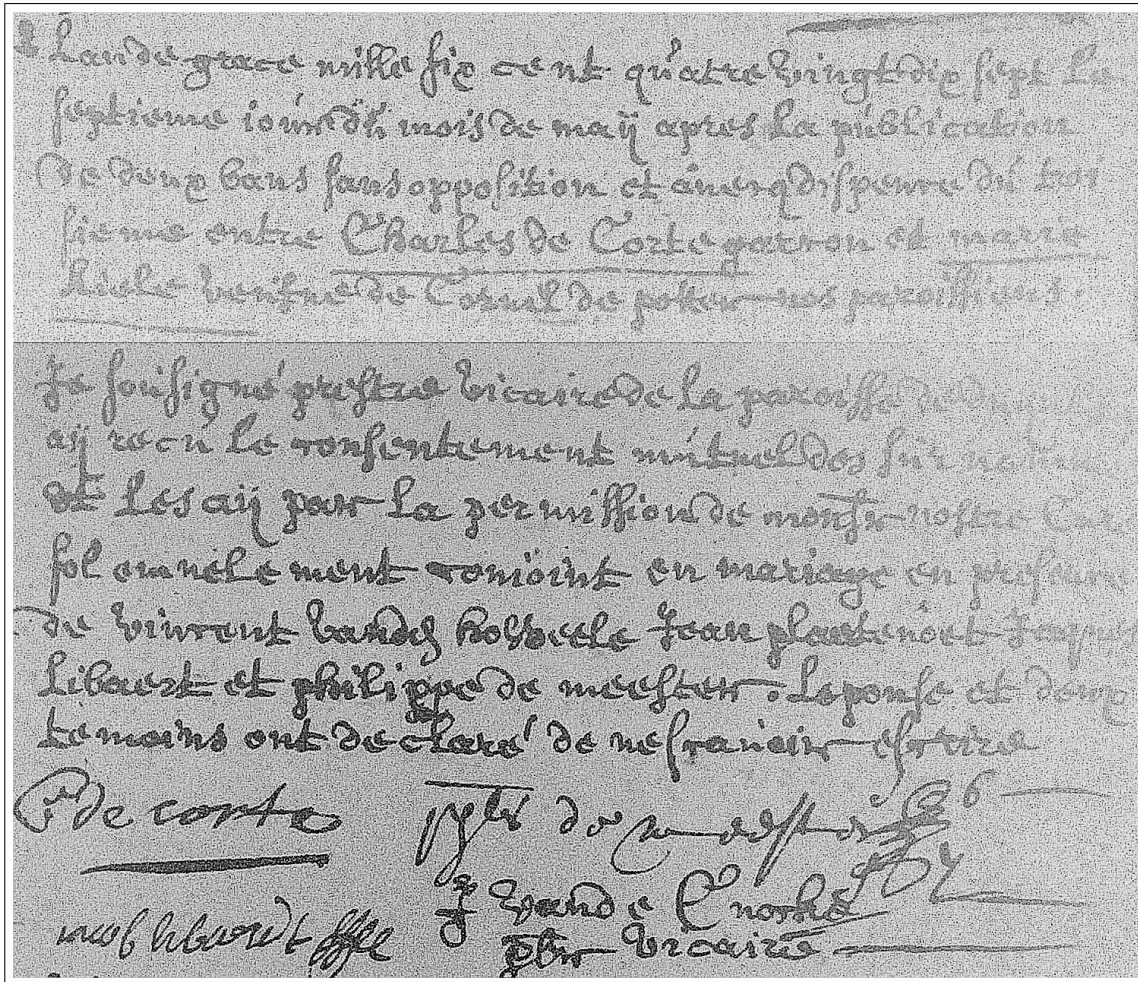 Lan de grace mille six cent quatre vingt dix sept Le
septieme iour du mois de maÿ apres La publication
de deux bans sans opposition et auecq dispence du troi
sieme entre Charles de Corte garcon et marie
veufue de Cornil de potter nos paroissiens.
Je sousigné prestre vicaire de La paroisse de
aÿ recu Le consentement mutuel des surnommes
et Les aÿ par La permission de monsr nostre Curé
solemnelement conioint en mariage en presence
de vincent vanden Jean et Jaques
Libaert et philippe de meester. Lepouse et deux
temoins ont declaré de ne scauoir escrire
C de corte phls de meester
J vande
libaert pbr vicaire